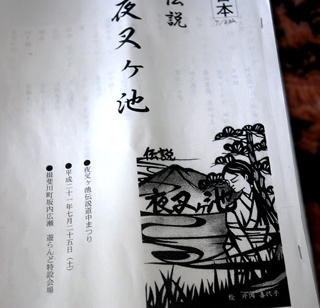 本
伝説
夜叉ヶ池
●夜叉ヶ池伝説道中まつり
●平成二十一年七月二十五日(土)
●揖斐川町坂内広瀬 遊らんど特設会場
伝説
夜叉ヶ池